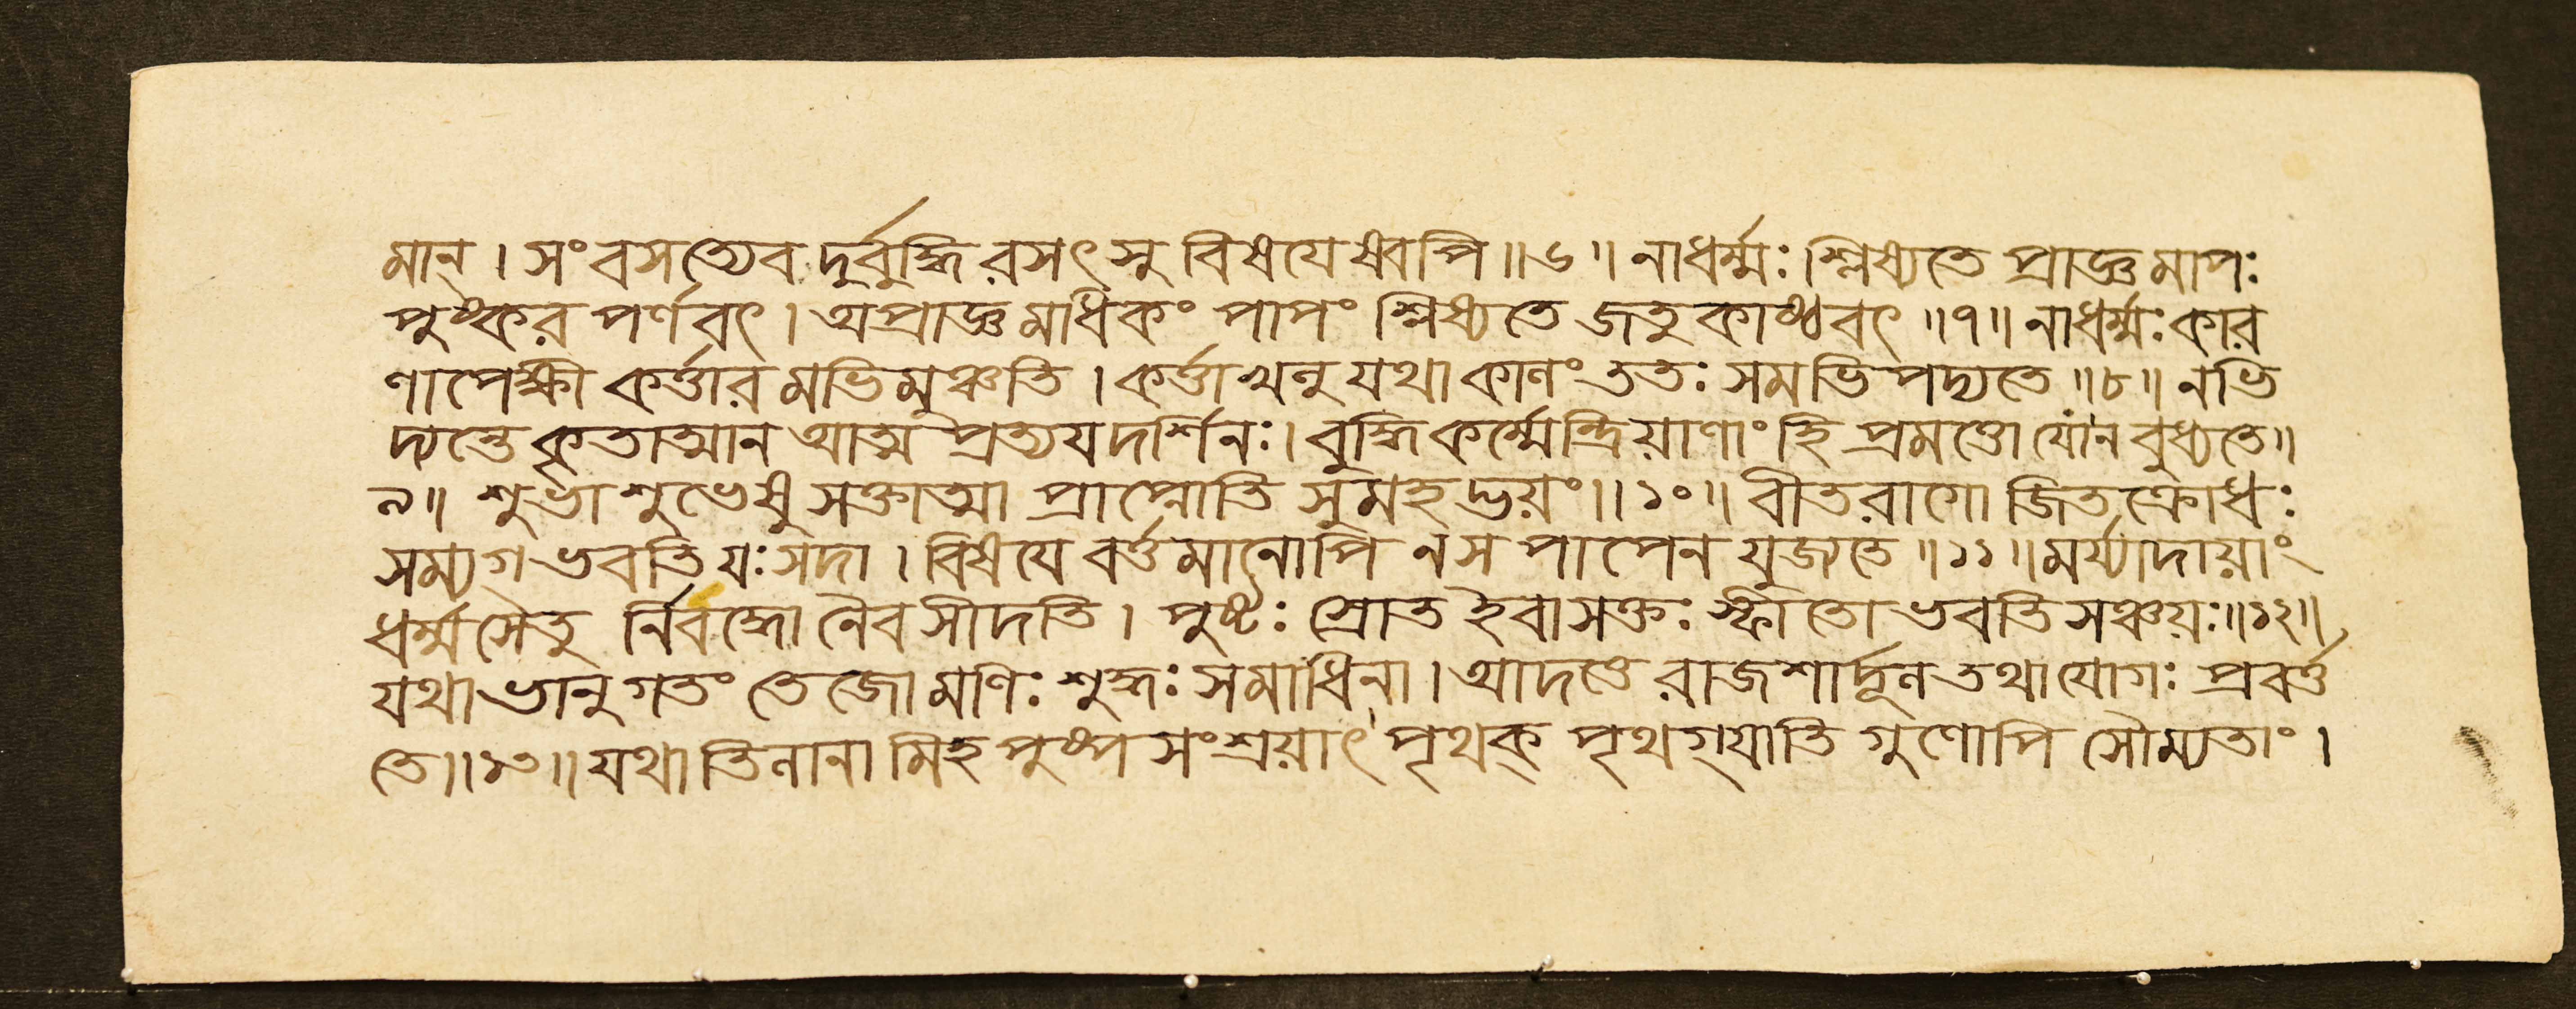 মান্। সংবসত্যেব দুর্বুদ্ধিরসৎসু বিষযেষ্বপি॥৬॥ নাধর্ম্মঃ শ্লিষ্যতে প্রাজ্ঞমাপঃ
পুষ্করপর্ণবৎ। অপ্রাজ্ঞমধিকং পাপং শ্লিষ্যতে জতুকাষ্ঠবৎ॥৭॥ নাধর্ম্মঃ কার
ণাপেক্ষী কর্ত্তারমভিমুঞ্চতি। কর্ত্তা খলু যথাকালং ততঃ সমভিপদ্যতে॥৮॥ নভি
দ্যন্তে কৃতাত্মান আত্মপ্রত্যযদর্শিনঃ। বুদ্ধিকর্ম্মেন্দ্রিয়াণাং হি প্রমত্তো যো ন বুধ্যতে॥
৯॥ শুভাশুভেষু সক্তাত্মা প্রাপ্নোতি সুমহদ্ভয়ং॥১০॥ বীতরাগো জিতক্রোধঃ
সম্যগ্ ভবতি যঃ সদা। বিষযে বর্ত্তমানোপি ন স পাপেন যুজ্যতে॥১১॥ মর্য্যাদায়াং
ধর্ম্মসেতু র্নিবদ্ধো নৈব সীদতি। পুষ্টঃ স্রোত ইবাসক্তঃ স্ফীতো ভবতি সঞ্চয়ঃ॥১২॥
যথা ভানুগতং তেজো মণিঃ শুদ্ধঃ সমাধিনা। আদত্তে রাজশার্দূল তথা যোগঃ প্রবর্ত্ত
তে॥১৩॥ যথা তিলানামিহ পুষ্পসংশ্রয়াৎ পৃথক্ পৃথগ্যাতি গুণোপি সৌম্যতাং।